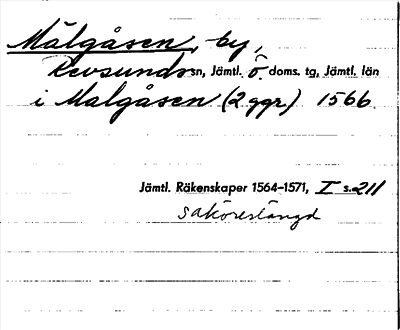 Mälgåsen, by,
Revsunds sn, Jämtl. ö. doms. tg, Jämtl. län
i Malgåsen (2 ggr) 1566
Jämtl. Räkenskaper 1564–1571, I s. 211
saköreslängd